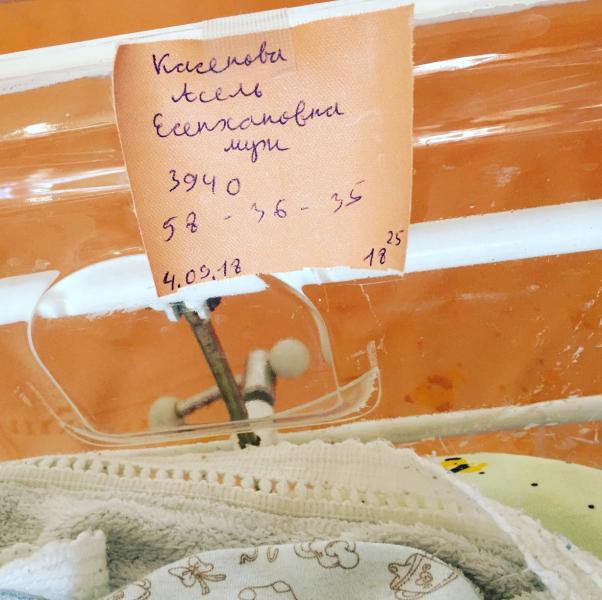 Касенова
Асель
Есенхановна
муж
3940
58 - 36 - 35
4.09.18
18 25